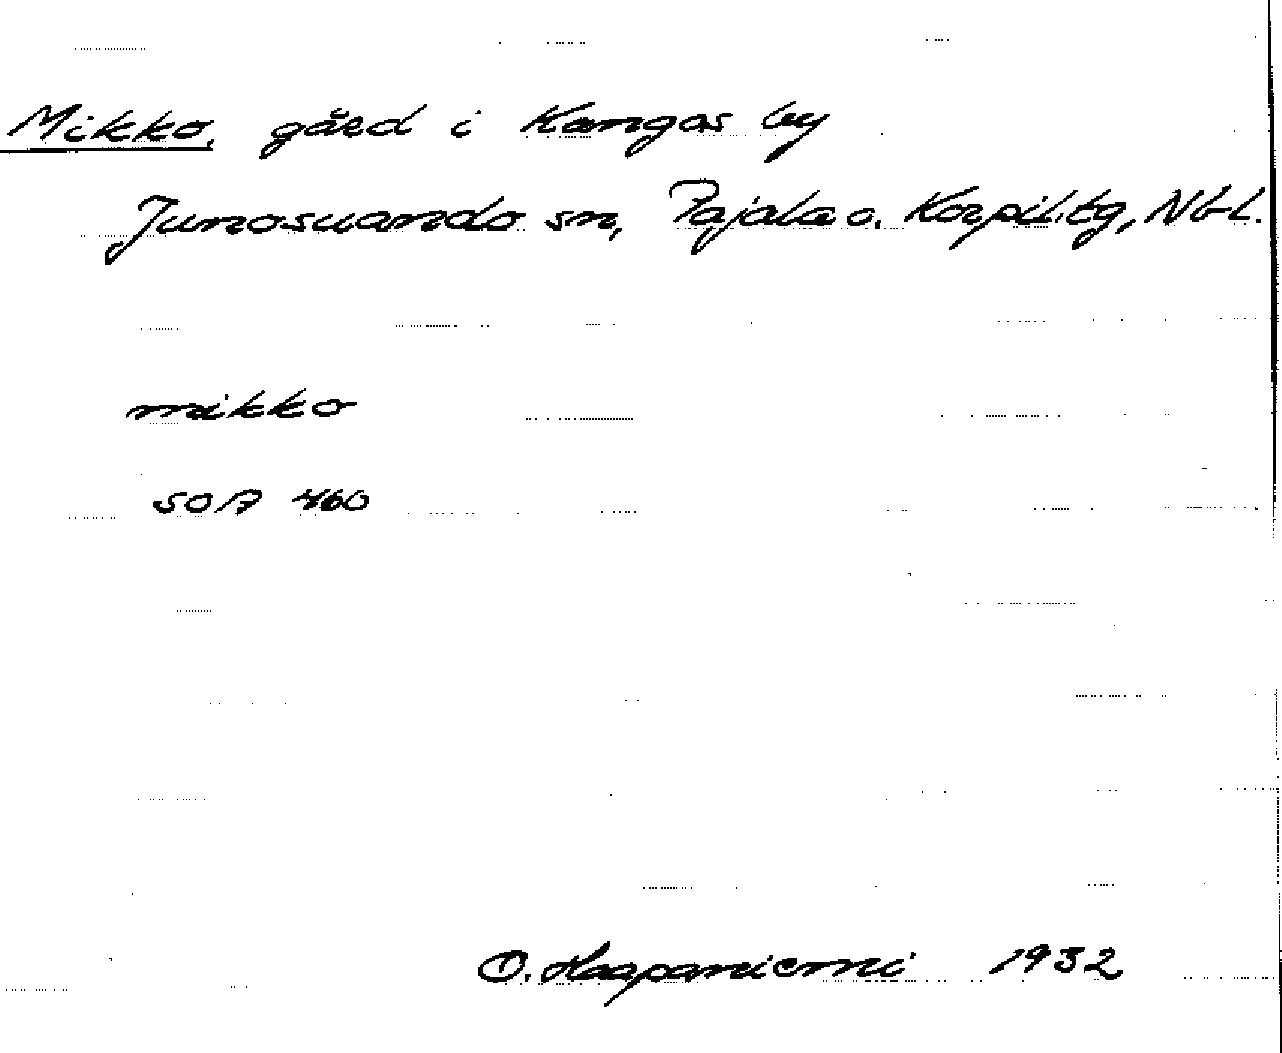 Mikko, gård i Kangas by
Junosuando sn, Pajala o. Korpil. tg, Nbl.
mikko
SOA 460
O. Haapaniemi 1932